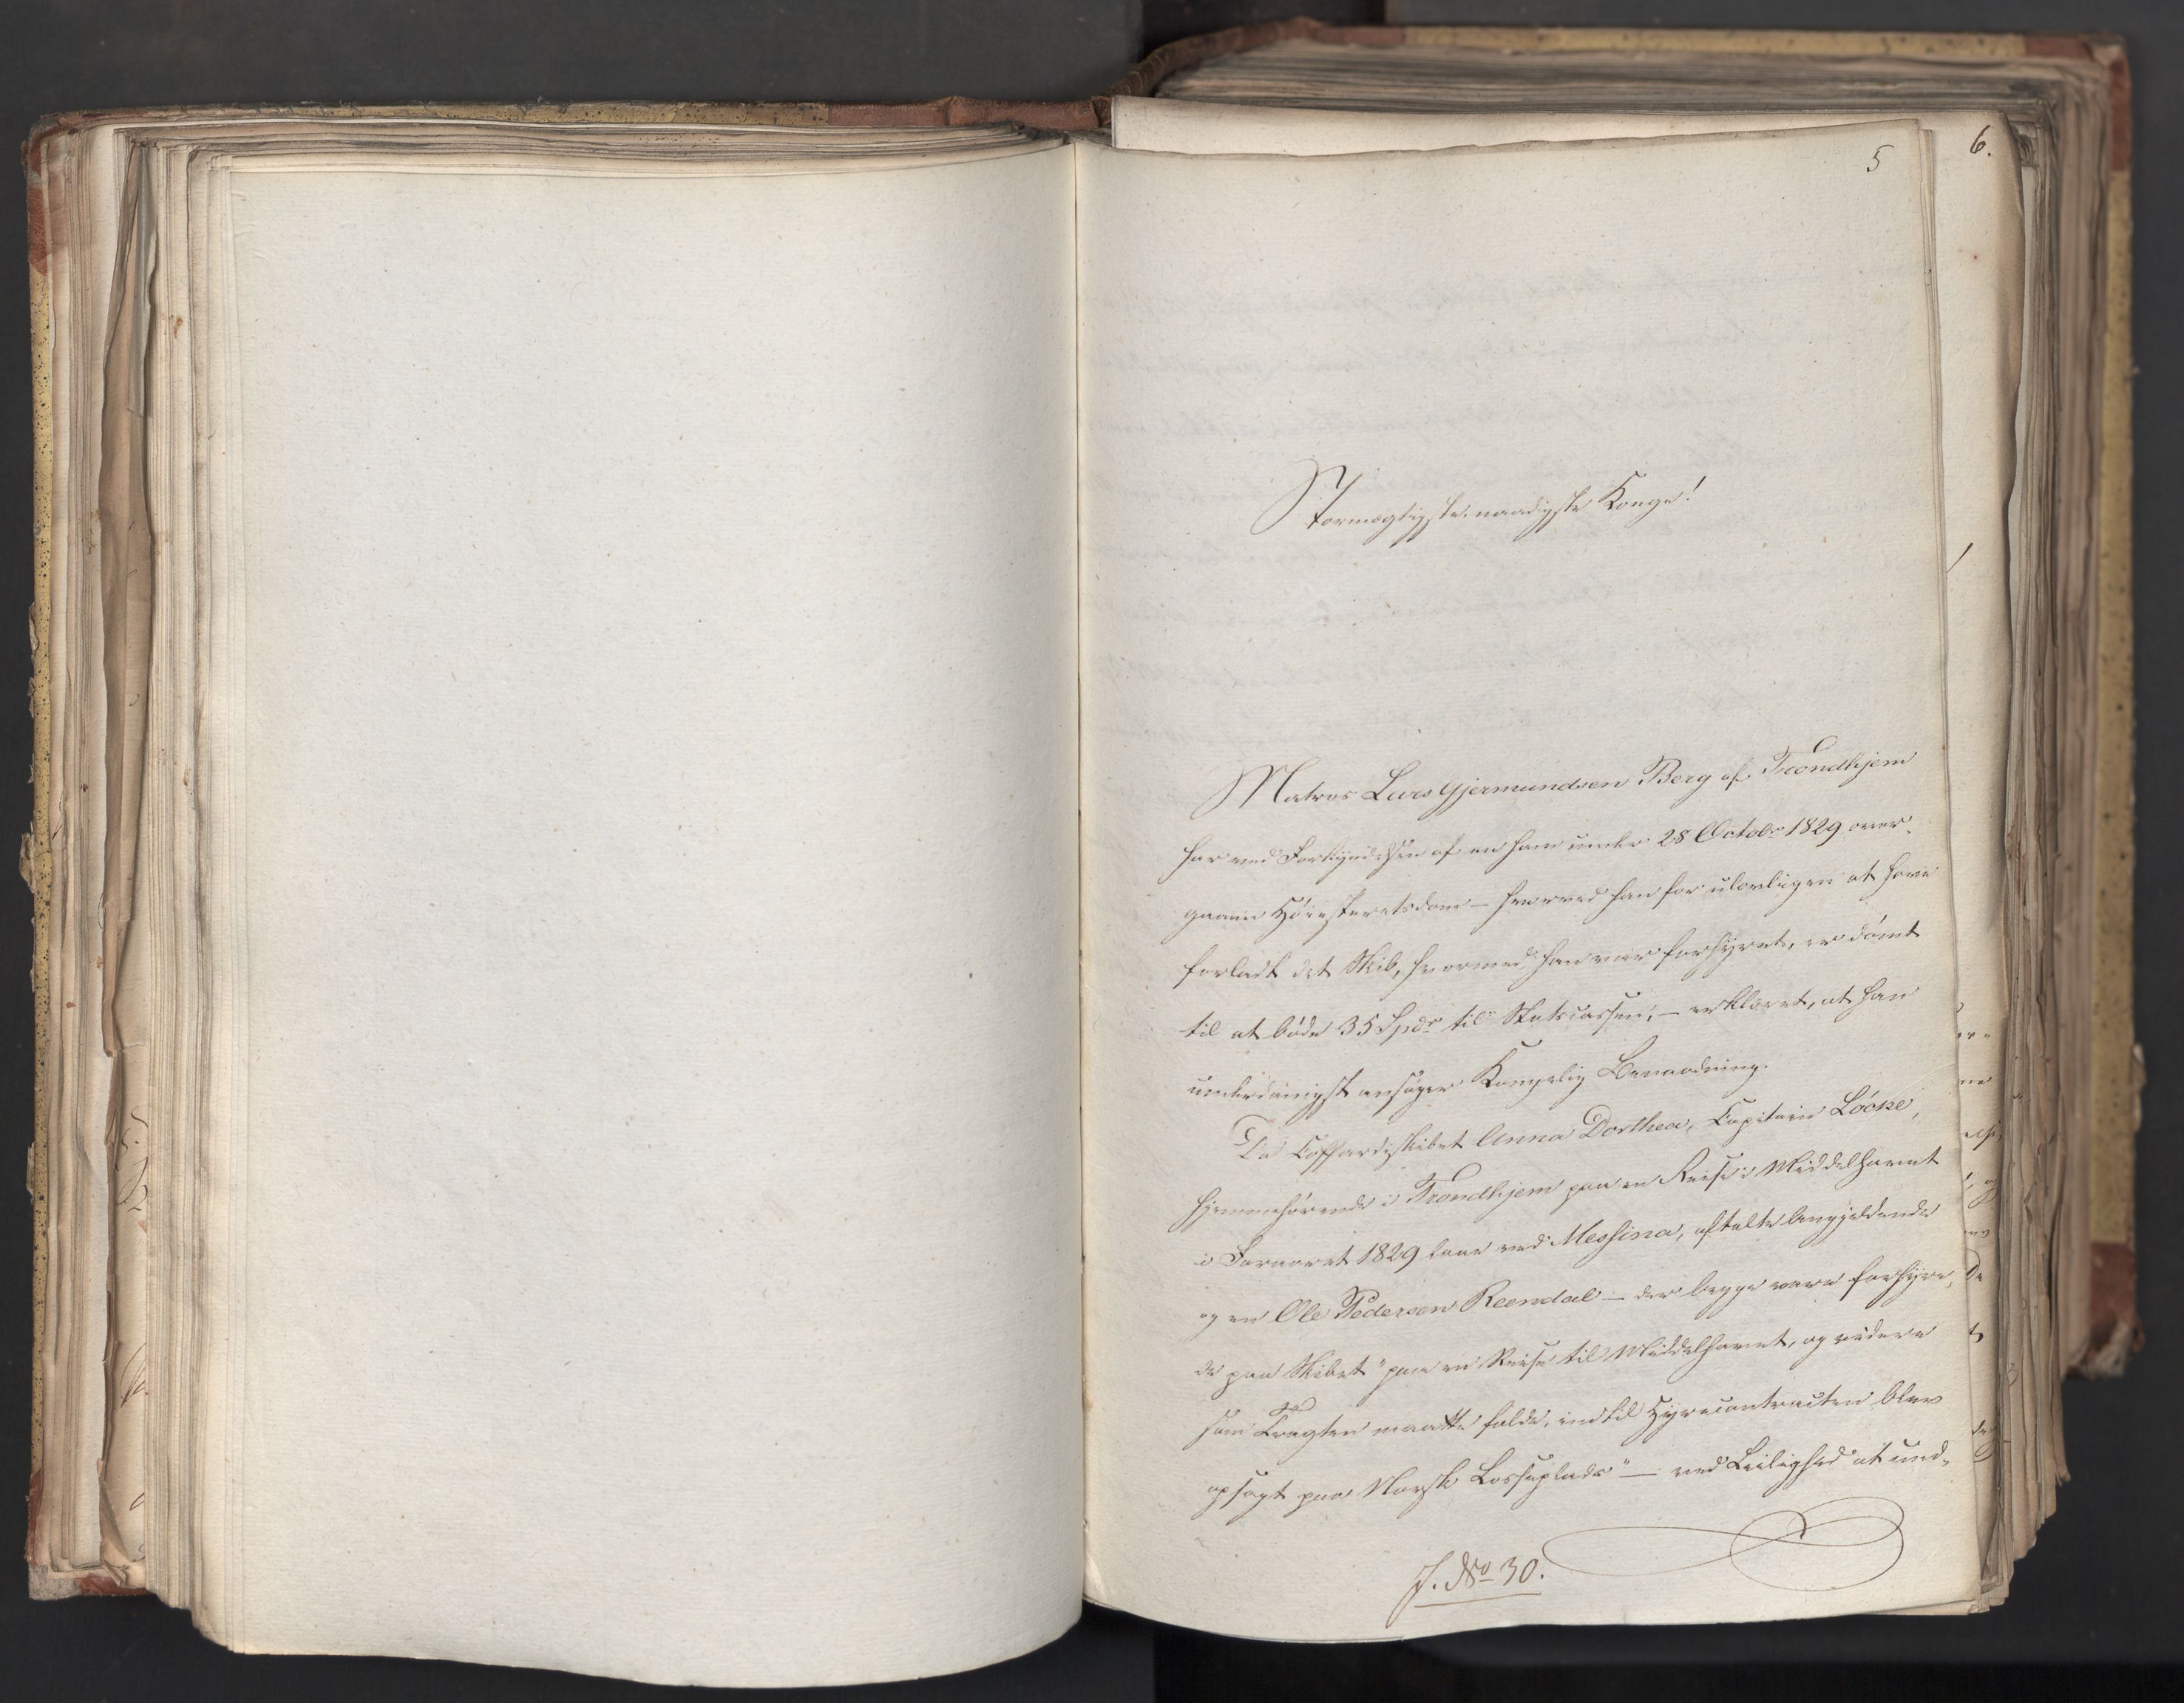 5
6.
Stormægtigste, naadigste Konge!
Matros Lars Gjermundsen Berg af Trondhjem
har ved Forkyndelsen af en ham under 28 Octobr 1829 over-
gaaen Høiesteretsdom – hvorved han for ulovligen at have
forladt det Skib, hvormed han var forhyret, er dømt
til at bøde 35 Spdr til Statscassen, – erklæret, at han
underdanigst ansøger Kongelig Benaadning.
Da Coffardiskibet Anna Dorthea, Capitain Lööke,
hjemmehørende i Trondhjem paa en Reise i Middelhavet
i Foraaret 1829 laae ved Messina, aftalte Angjeldende
og en Ole Pedersen Reendal – der begge vare forhyre-
de paa Skibet "paa en Reise til Middelhavet, og videre
som Fragten maatte falde, indtil Hyrecontracten blev
opsagt paa Norsk Losseplads" – ved Leilighed at und-
J. No 30.